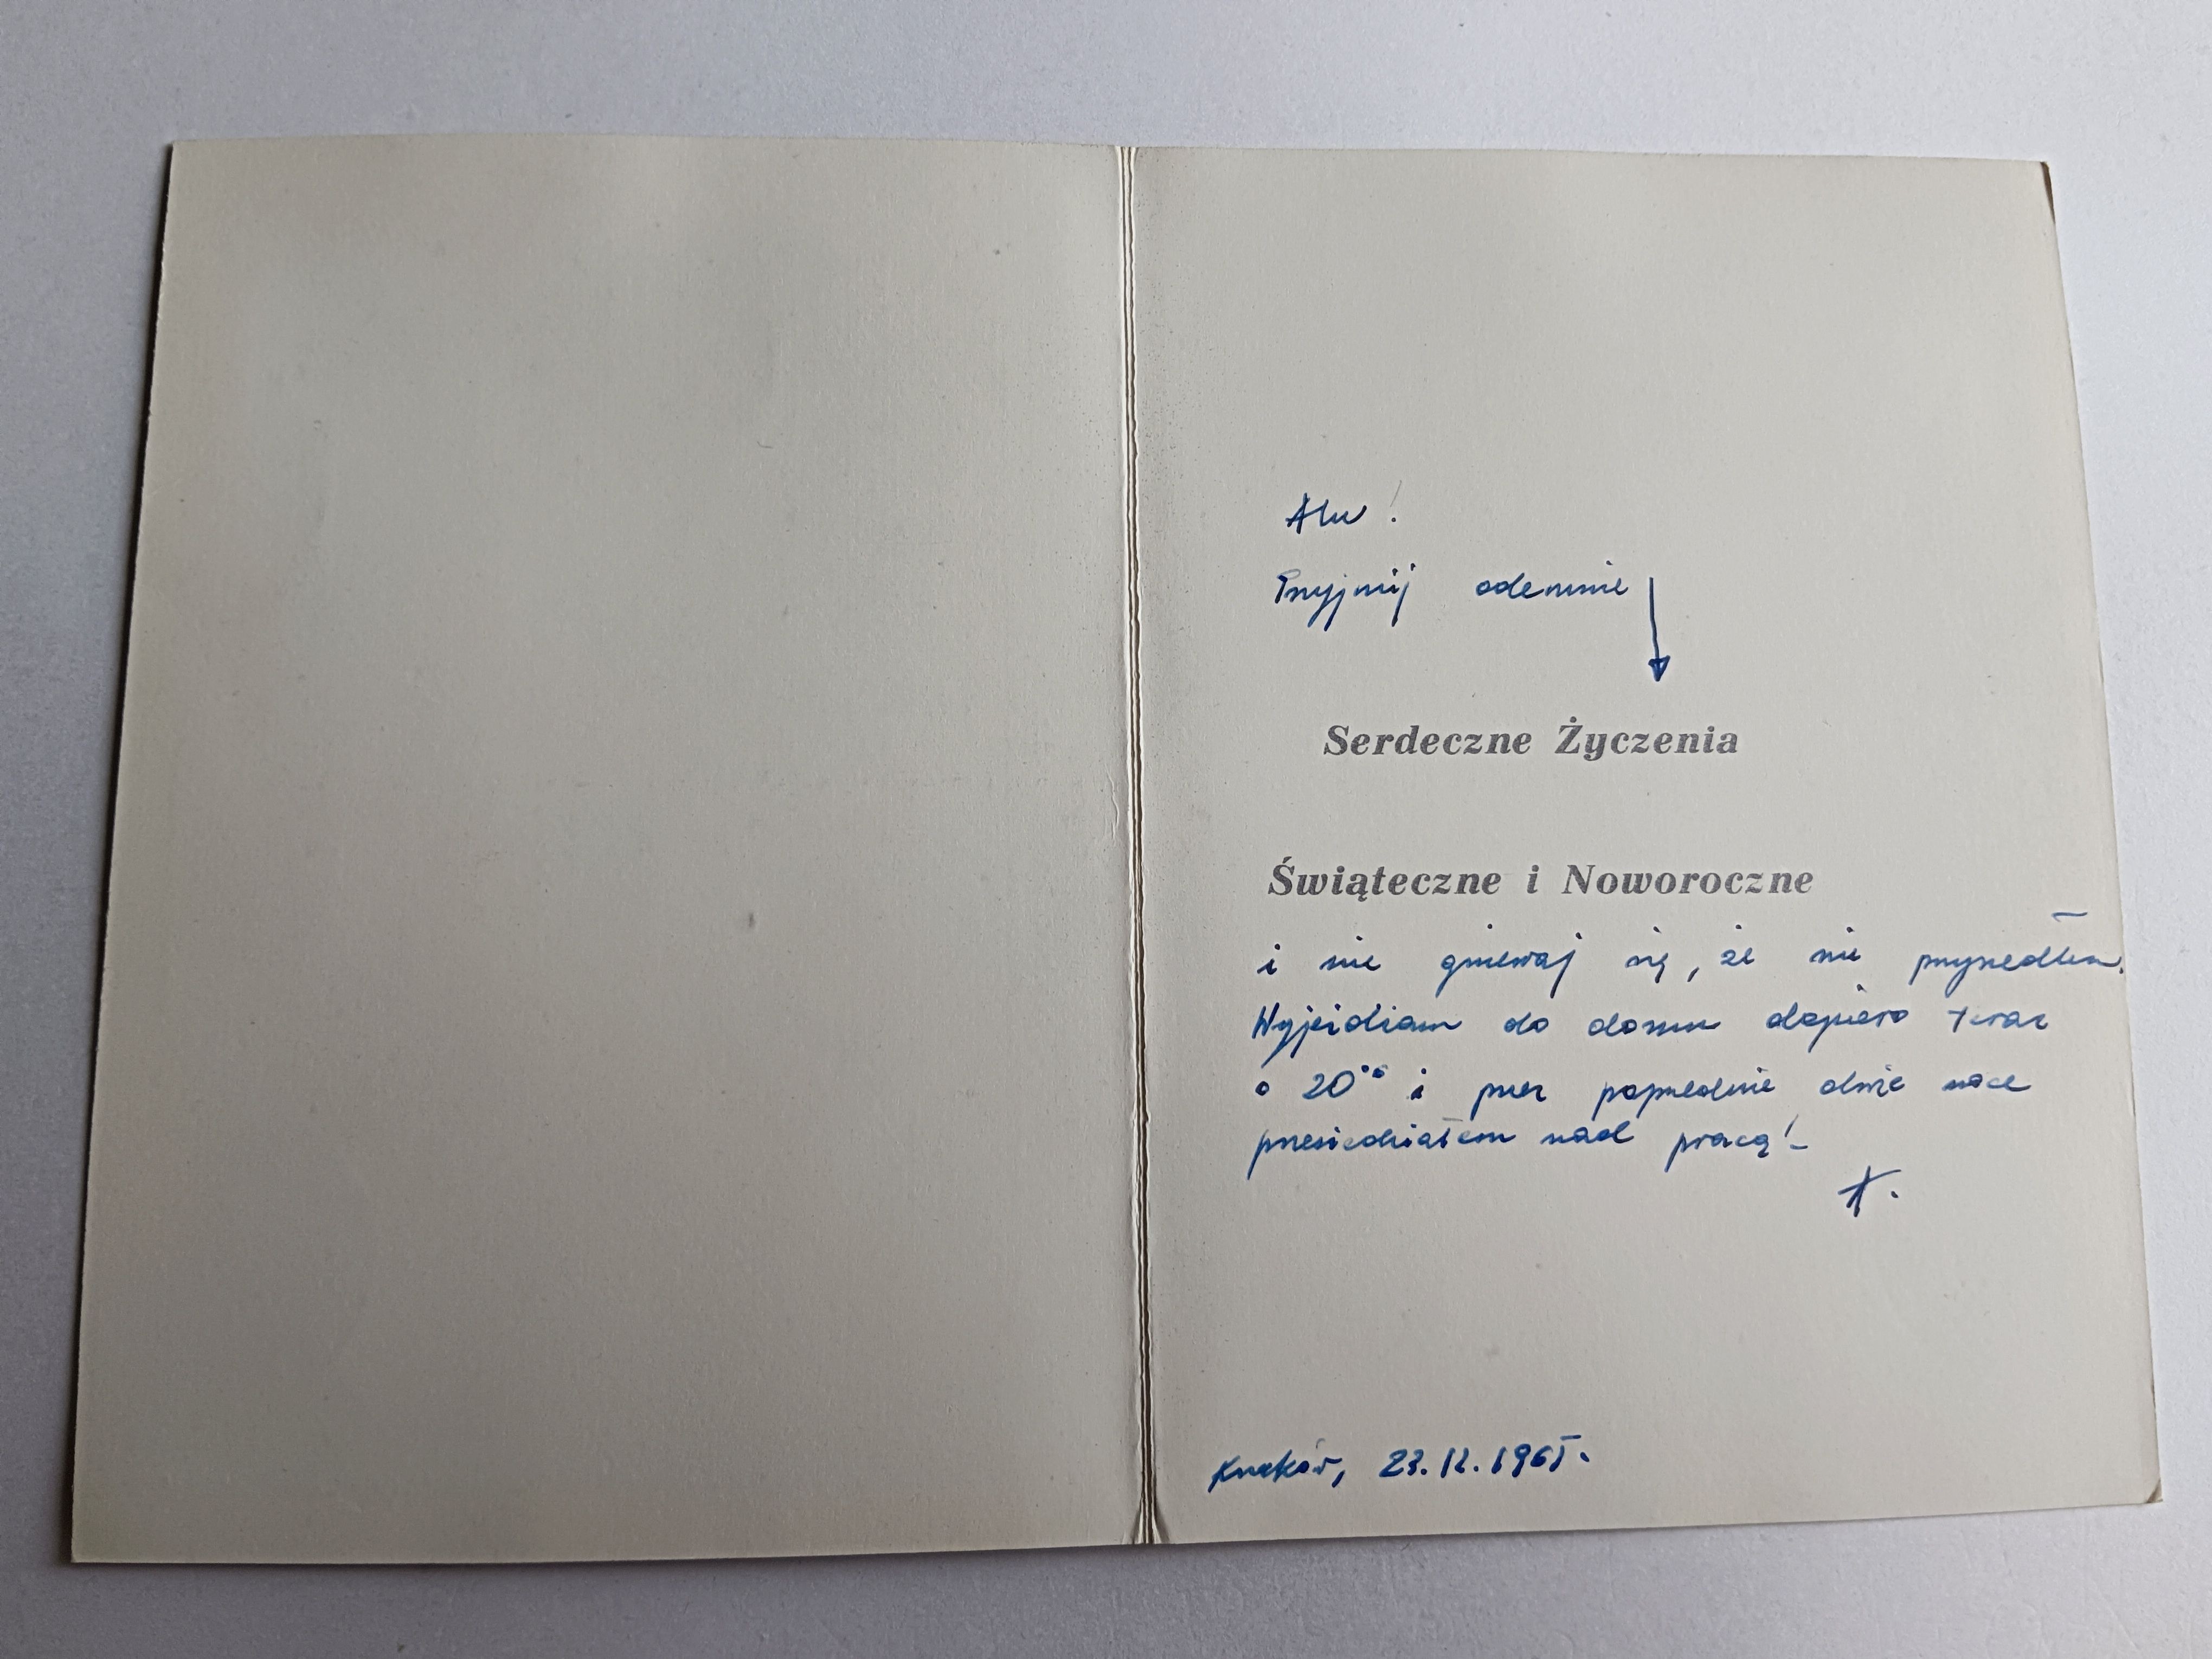 Alu!
Przyjmij odemnie
Serdeczne Życzenia
Świąteczne i Noworoczne
i nie gniewaj się, że nie przyszedłem.
Wyjeżdżam do domu dopiero teraz
o 20°° i przez poprzednie dwie noce
przesiedziałem nad pracą!
Kraków, 23.12.1965.